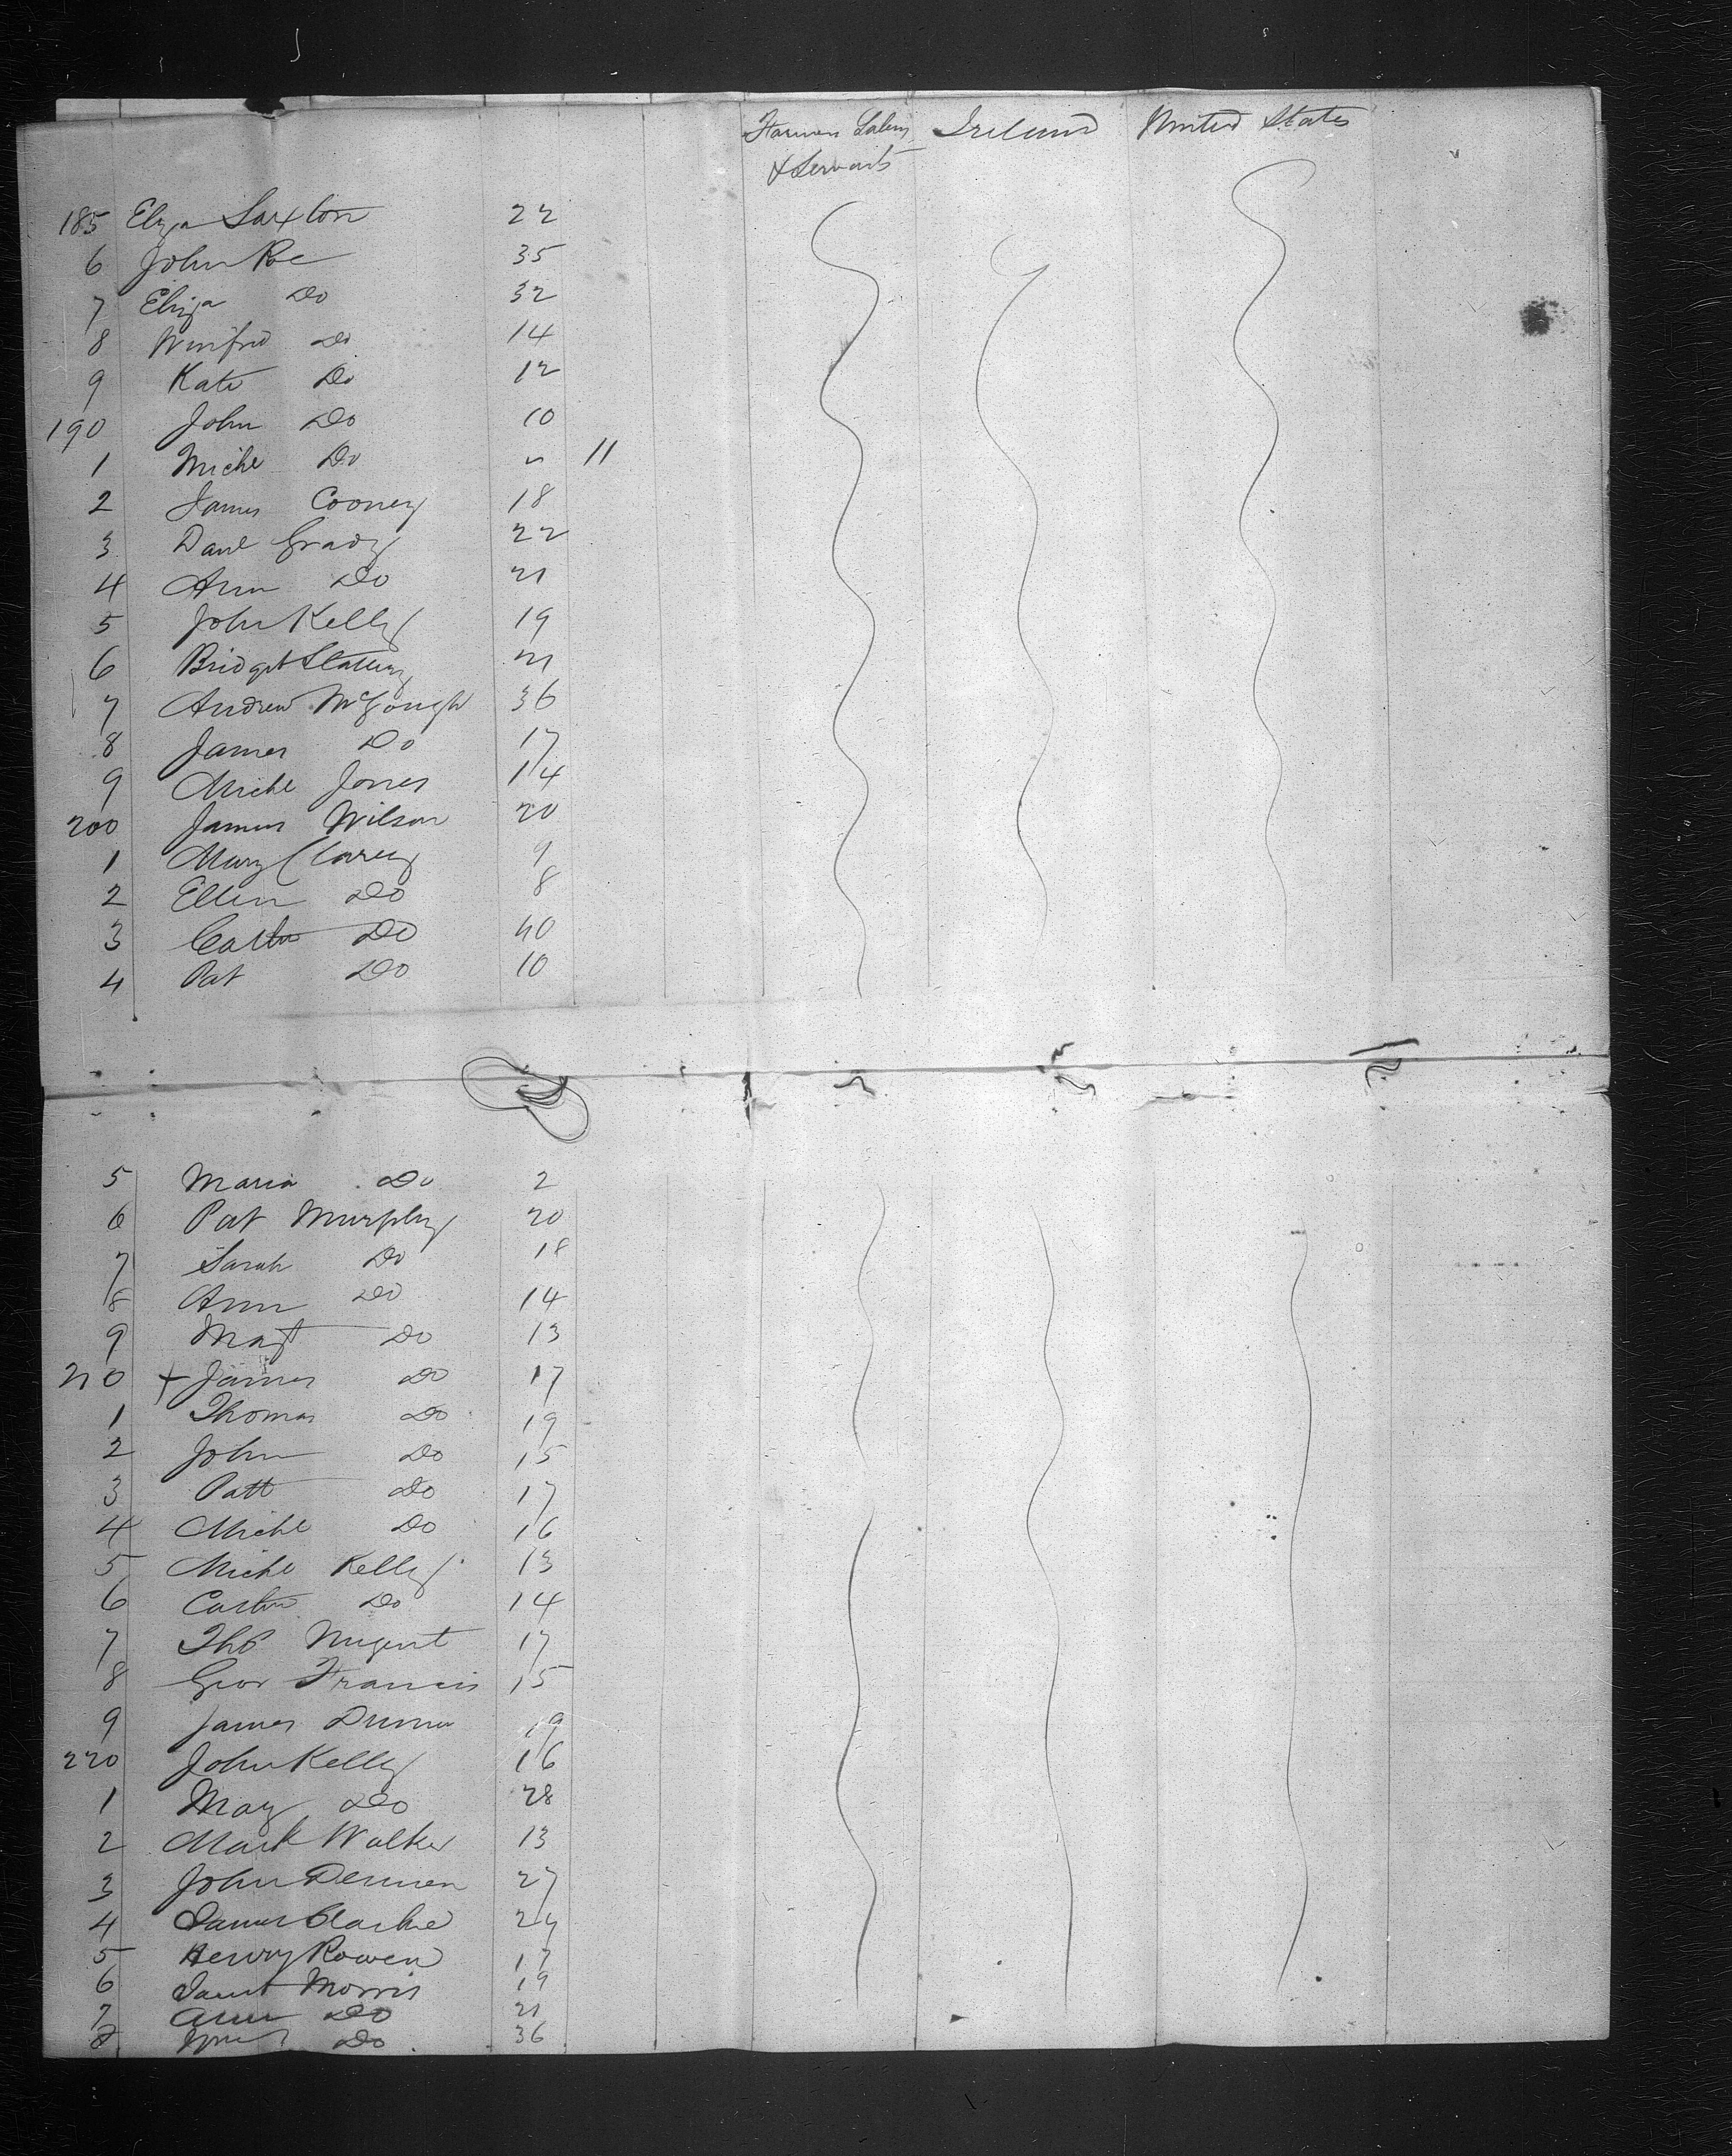 Farmers Labrs Ireland United States
& Servants
185 Eliza Saxton 22
6 John Roe 35
7 Eliza Do 32
8 Winifred Do 14
9 Kate Do 12
190 John Do 10
1 Michl Do 11
2 James Cooney 18
3 Danl Grady 22
4 Ann Do 21
5 John Kelly 19
6 Bridget Slattery 21
7 Andrew McGough 36
8 James Do 17
9 Michl Jones 14
200 James Wilson 20
1 Mary Clarey 9
2 Ellen Do 8
3 Cath Do 40
4 Pat Do 10
5 Maria Do 2
6 Pat Murphy 20
7 Sarah Do 18
8 Ann Do 14
9 Magt Do 13
210 + James Do 17
1 Thomas Do 19
2 John Do 15
3 Patt Do 17
4 Michl Do 16
5 Michl Kelly 13
6 Cathn Do 14
7 Thos Nugent 17
8 Geor Francis 15
9 James Dunn 19
220 John Kelly 16
1 May Do 28
2 Mark Walker 13
3 John Dennen 27
4 James Clarke 24
5 Henry Rowen 17
6 Morris 19
7 Ann Do 21
8 Do 36